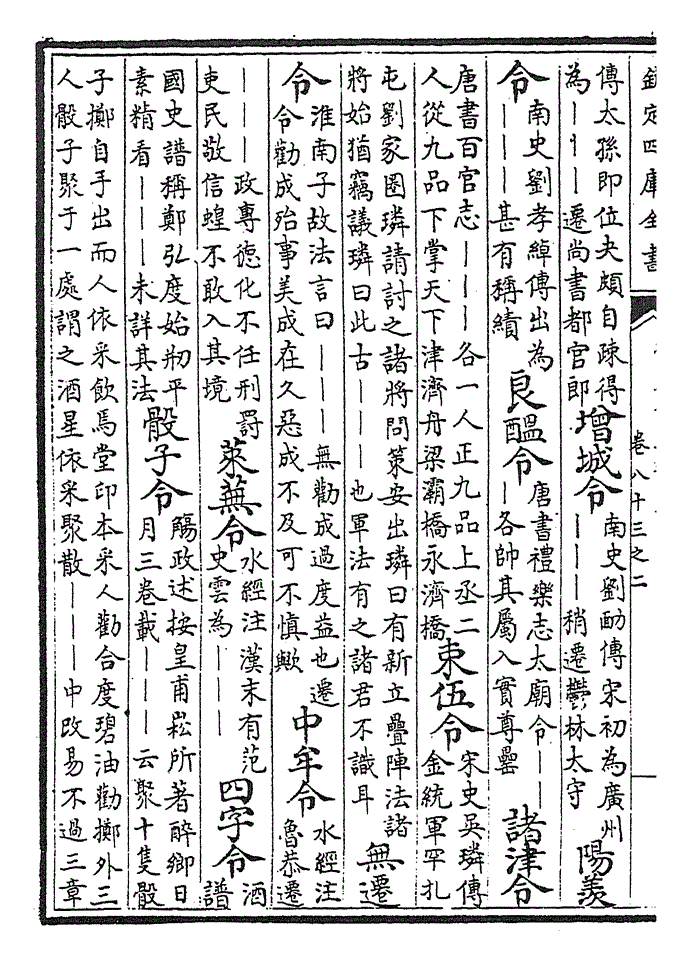 欽定四庫全書
卷八十三之二
傳太孫即位夬頗自疎得
為丨丨丨遷尚書都官郎
增城令
南史劉勔傳宋初為廣州
丨丨丨稍遷鬱林太守
陽羨
令
南史劉孝綽傳出為
丨丨丨甚有稱績
良醞令
唐書禮樂志太廟令丨丨
丨各帥其屬入實尊罍
諸津令
唐書百官志丨丨丨各一人正九品上丞二
人從九品下掌天下津濟舟梁灞橋永濟橋
束伍令
宋史吳璘傳
金統軍罕扎
屯劉家圏璘請討之諸將問策安出璘曰有新立疊陣法諸
將始猶竊議璘曰此古丨丨丨也軍法有之諸君不識耳
無遷
令
淮南子故法言曰丨丨丨無勸成過度益也遷
令勸成殆事美成在久惡成不及可不慎歟
中牟令
水經注
魯恭遷
丨丨丨政專德化不任刑罰
吏民敬信蝗不敢入其境
萊蕪令
水經注漢末有范
史雲為丨丨丨
四字令
酒
譜
國史譜稱鄭弘度始剙平
素精看丨丨丨未詳其法
骰子令
觴政述按皇甫崧所著醉鄉日
月三卷載丨丨丨云聚十隻骰
子擲自手出而人依采飲焉堂印本采人勸合度碧油勸擲外三
人骰子聚于一處謂之酒星依采聚散丨丨丨中改易不過三章